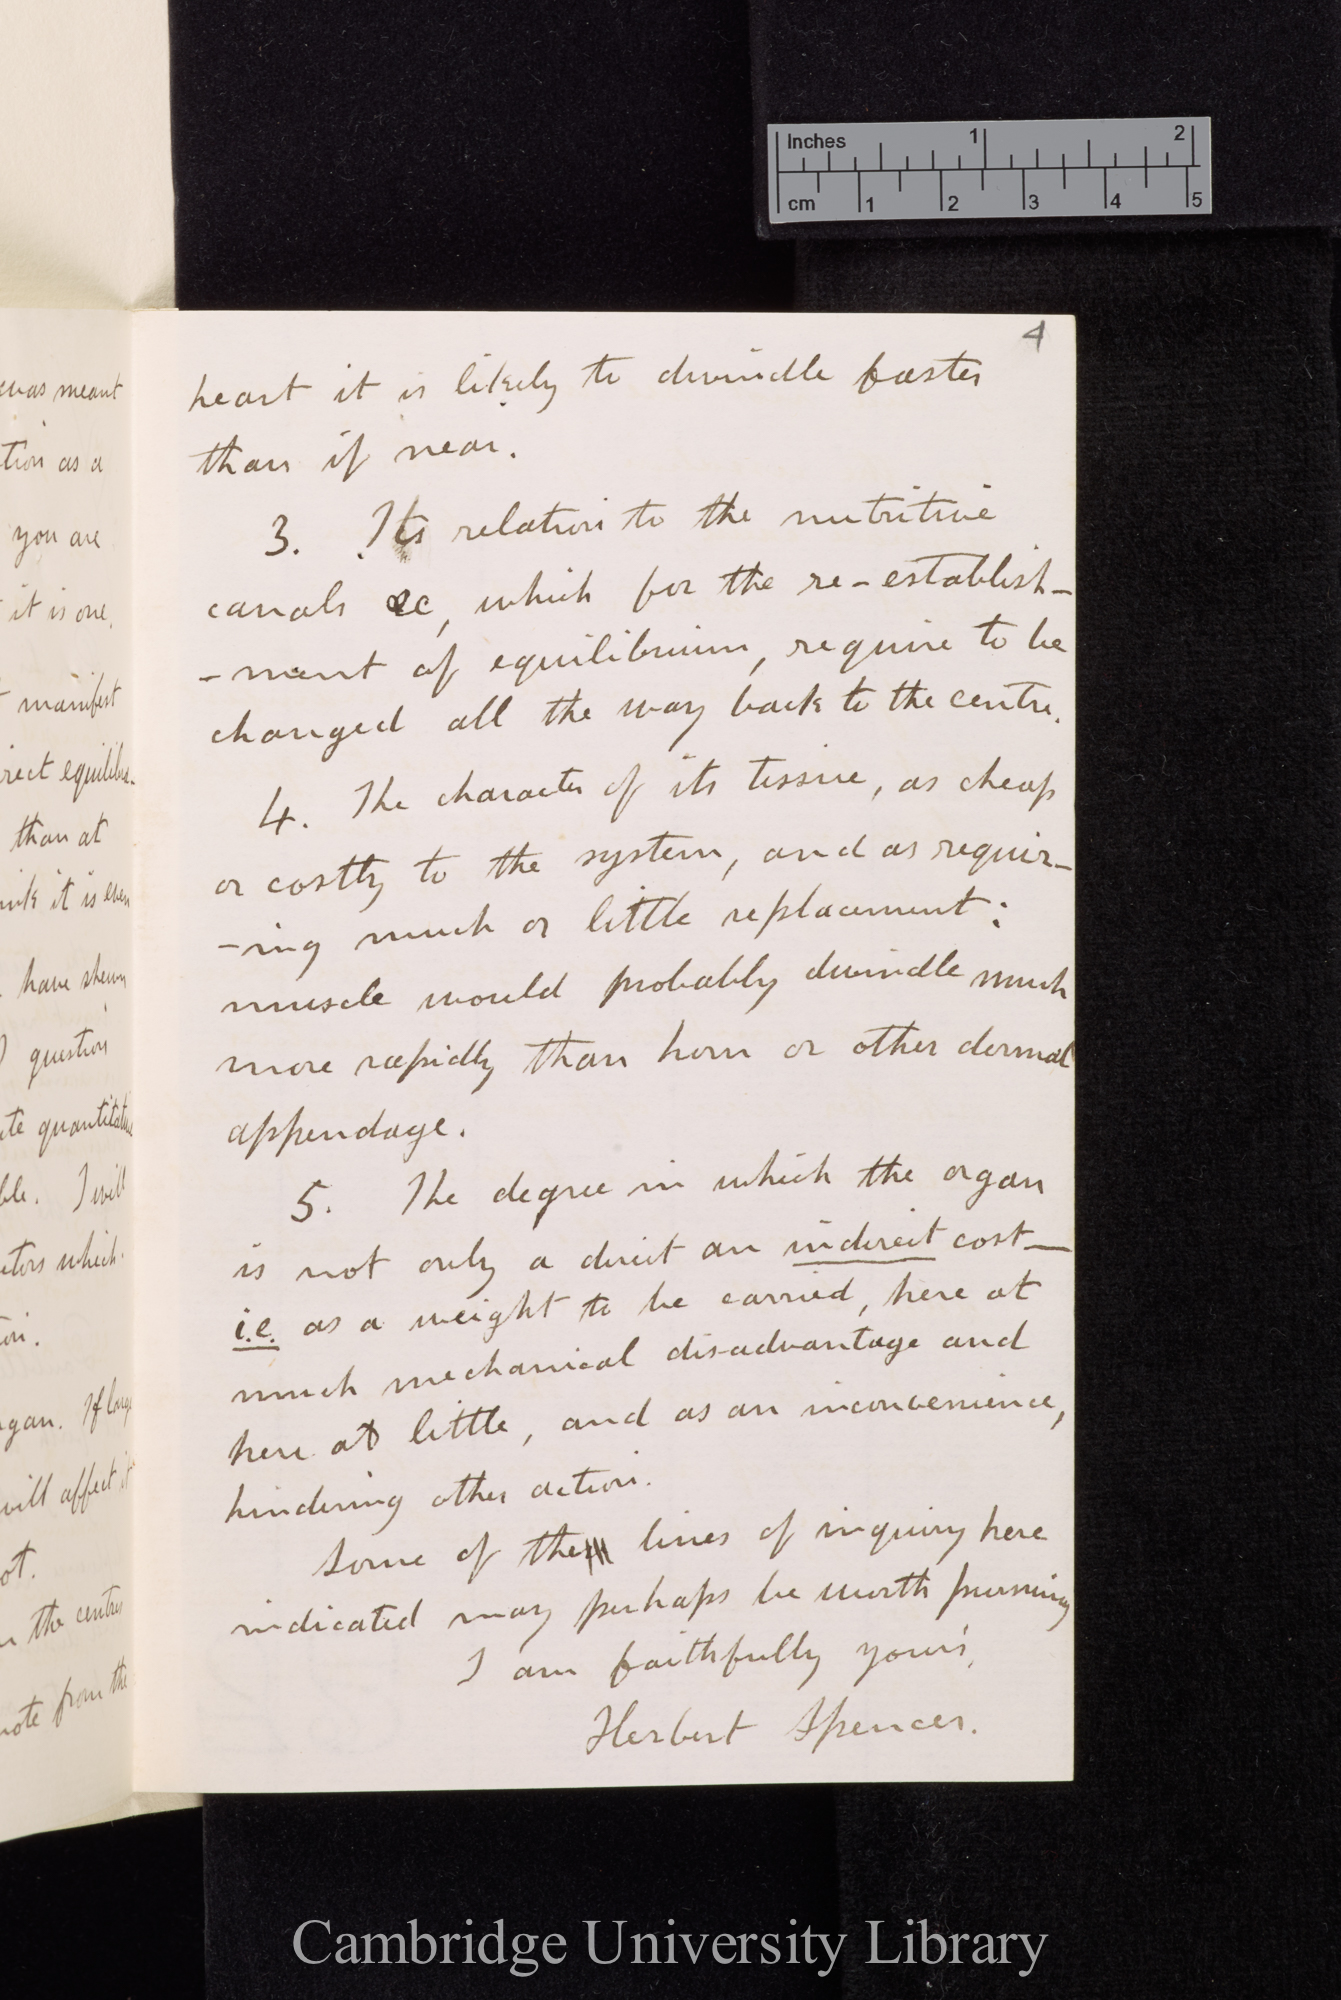 4
heart it is likely to dwindle faster
than if near.
3. Its relation to the nutritive
canals &c, which for the re-establish-
-ment of equilibrium, require to be
changed all the way back to the centre.
4. The character of its tissue, as cheap
or costly to the system, and as requir-
-ing much or little replacement:
muscle would probably dwindle much
more rapidly than horn or other dermal
appendage.
5. The degree in which the organ
is not only a direct an indirect cost—
i.e. as a weight to be carried, here at
much mechanical disadvantage and
here at little, and as an inconvenience,
hindering other action.
Some of the lines of inquiry here
indicated may perhaps be worth pursuing
I am faithfully yours,
Herbert Spencer.
was meant
tion as a
you are
it is one,
manifest
rect equilibra-
than at
it is even
have shewn
question
quantitative
ble. I will
which
gan. If large
will affect it
ot.
the centres
from the
Inches 1 2
cm 1 2 3 4 5
Cambridge University Library